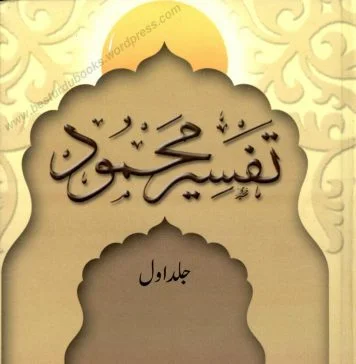 www.besturdubooks.wordpress.com
تفسیر محمود
جلد اول